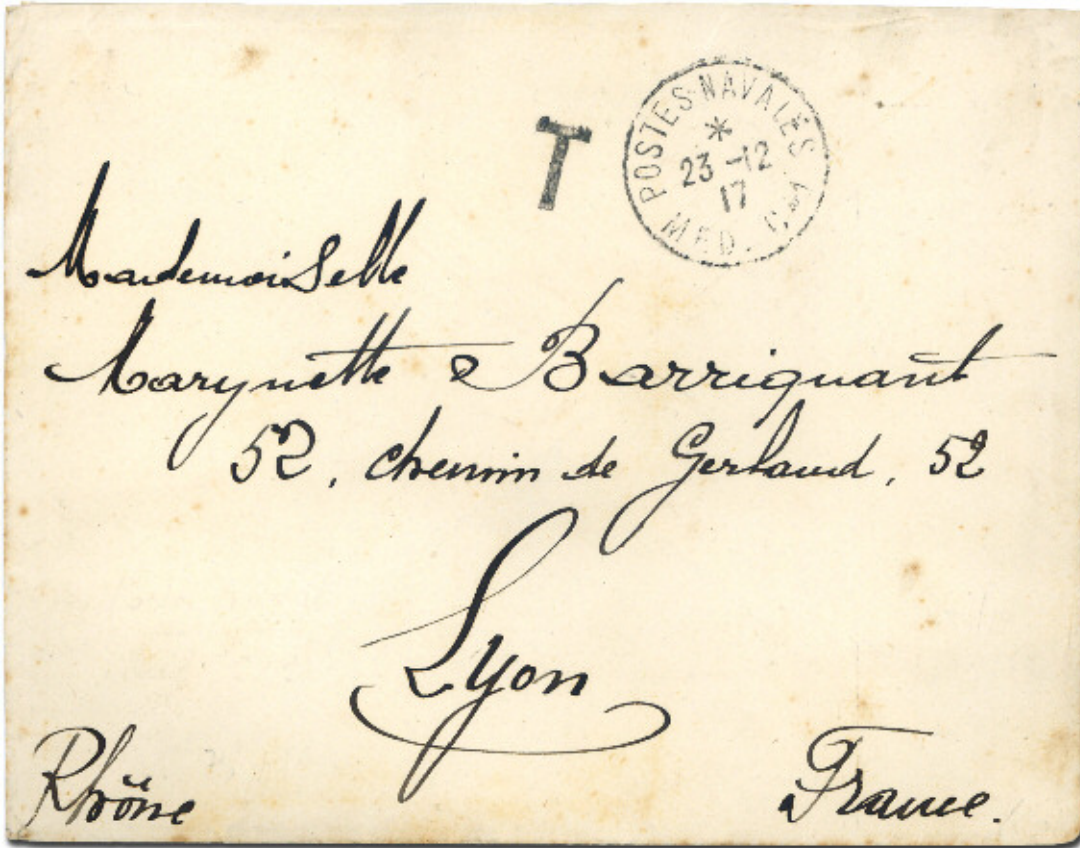 T
POSTES NAVALES
*
23 -12
17
MED.
Mademoiselle
Marynette Barriquant
52, chemin de Gerland, 52
Lyon
Rhône
France.